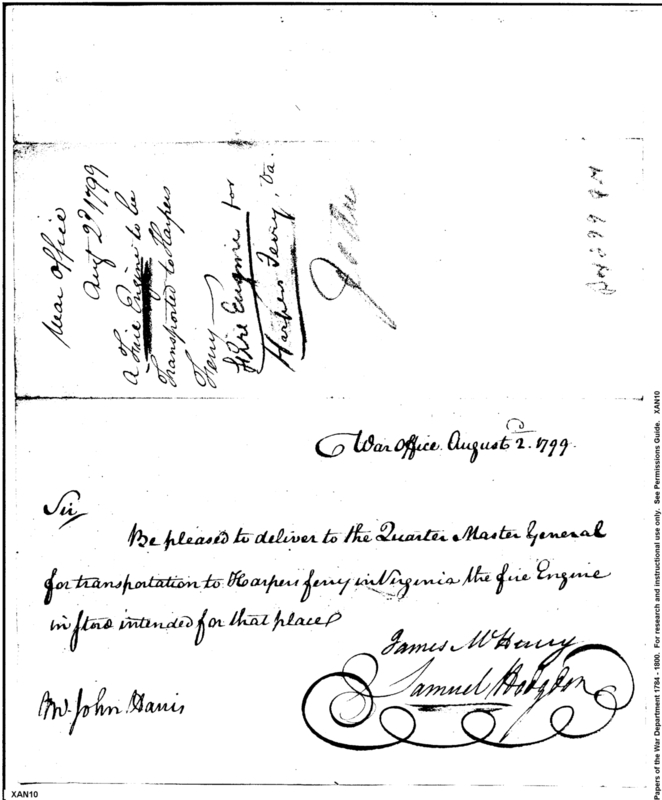 War Office
Augt 2d 1799
a Fire Engine to be
Transported to Harpers
Ferry
Fire Engine for
Harpers Ferry, Va.
War Office. August 2d. 1799.
Sir
Be pleased to deliver to the Quarter Master General
for transportation to Harpers ferry in Virginia the fire Engine
in Store intended for that place
James McHenry
Samuel Hodgdon
Mr. John Harris
Papers of the War Department 1784 - 1800. For research and instructional use only. See Permissions Guide. XAN10
XAN10